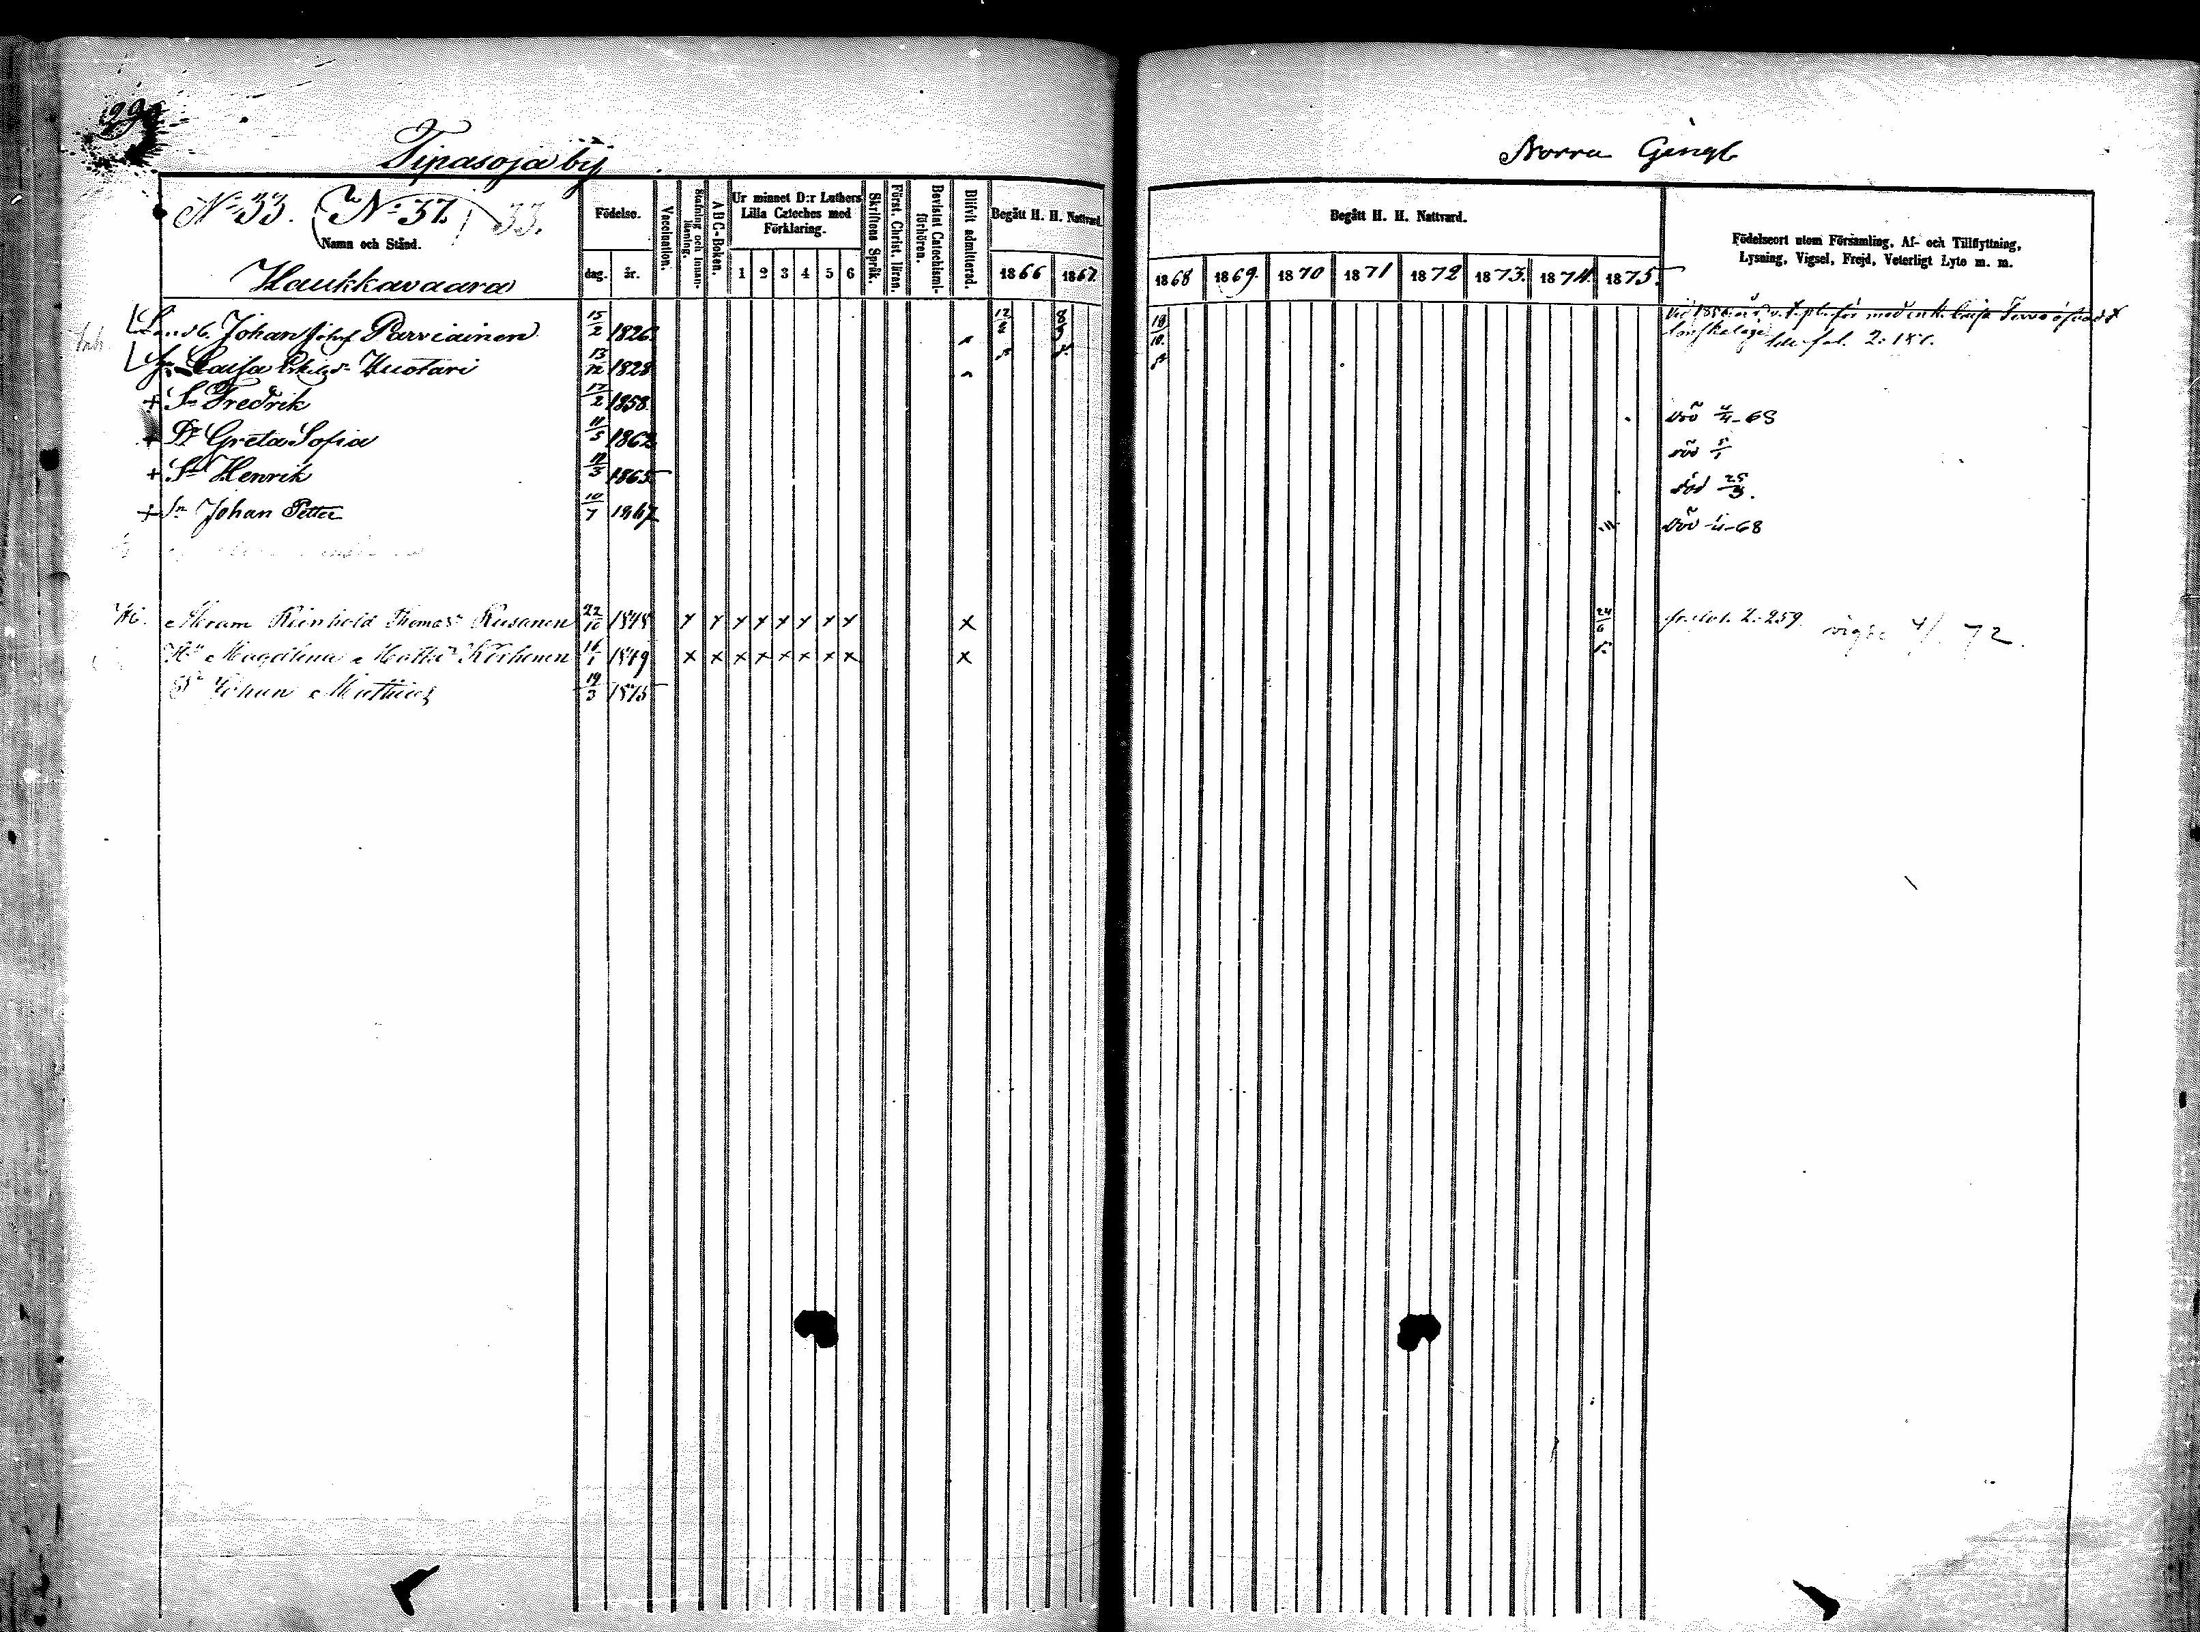 Tipasoja by
Norra Gingb
No 33. (No 37.) 33.
Namn och Stånd.
Haukkavaara
Födelse.
dag. år.
Vaccination.
Stafning och Innanläsning.
ABC-Boken.
Ur minnet D:r Luthers Lilla Cateches med Förklaring.
1 2 3 4 5 6
Skriftens Språk.
Först. Christ. läran.
Bevistat Catechismi-förhören.
Blifvit admitterad.
Begått H. H. Nattvard.
1866 1867
Begått H. H. Nattvard.
1868 1869. 1870 1871 1872 1873. 1874. 1875
Födelseort utom Församling, Af- och Tillflyttning,
Lysning, Vigsel, Frejd, Veterligt Lyte m. m.
Landb. Johan Parviainen 15/2 1826 12/4 8/9 18/10
Hu Caisa Huotari 13/12 1828
+ Sn Fredrik 17/2 1858 död 4/4-68
+ Dr Greta Sofia 11/5 1862 död 5/1
+ Sn Henrik 11/3 1865 död 25/3.
+ Sn Johan Petter 10/7 1867 död -68
Abram Reinhold Thomass Rusanen 22/10 1848 x x x x x x x x x 24/6 2. 259. 4/ 72.
Hu Magdelena Matts Korhonen 14/1 1849 x x x x x x x x x
Sn Johan Mathias 19/3 1875